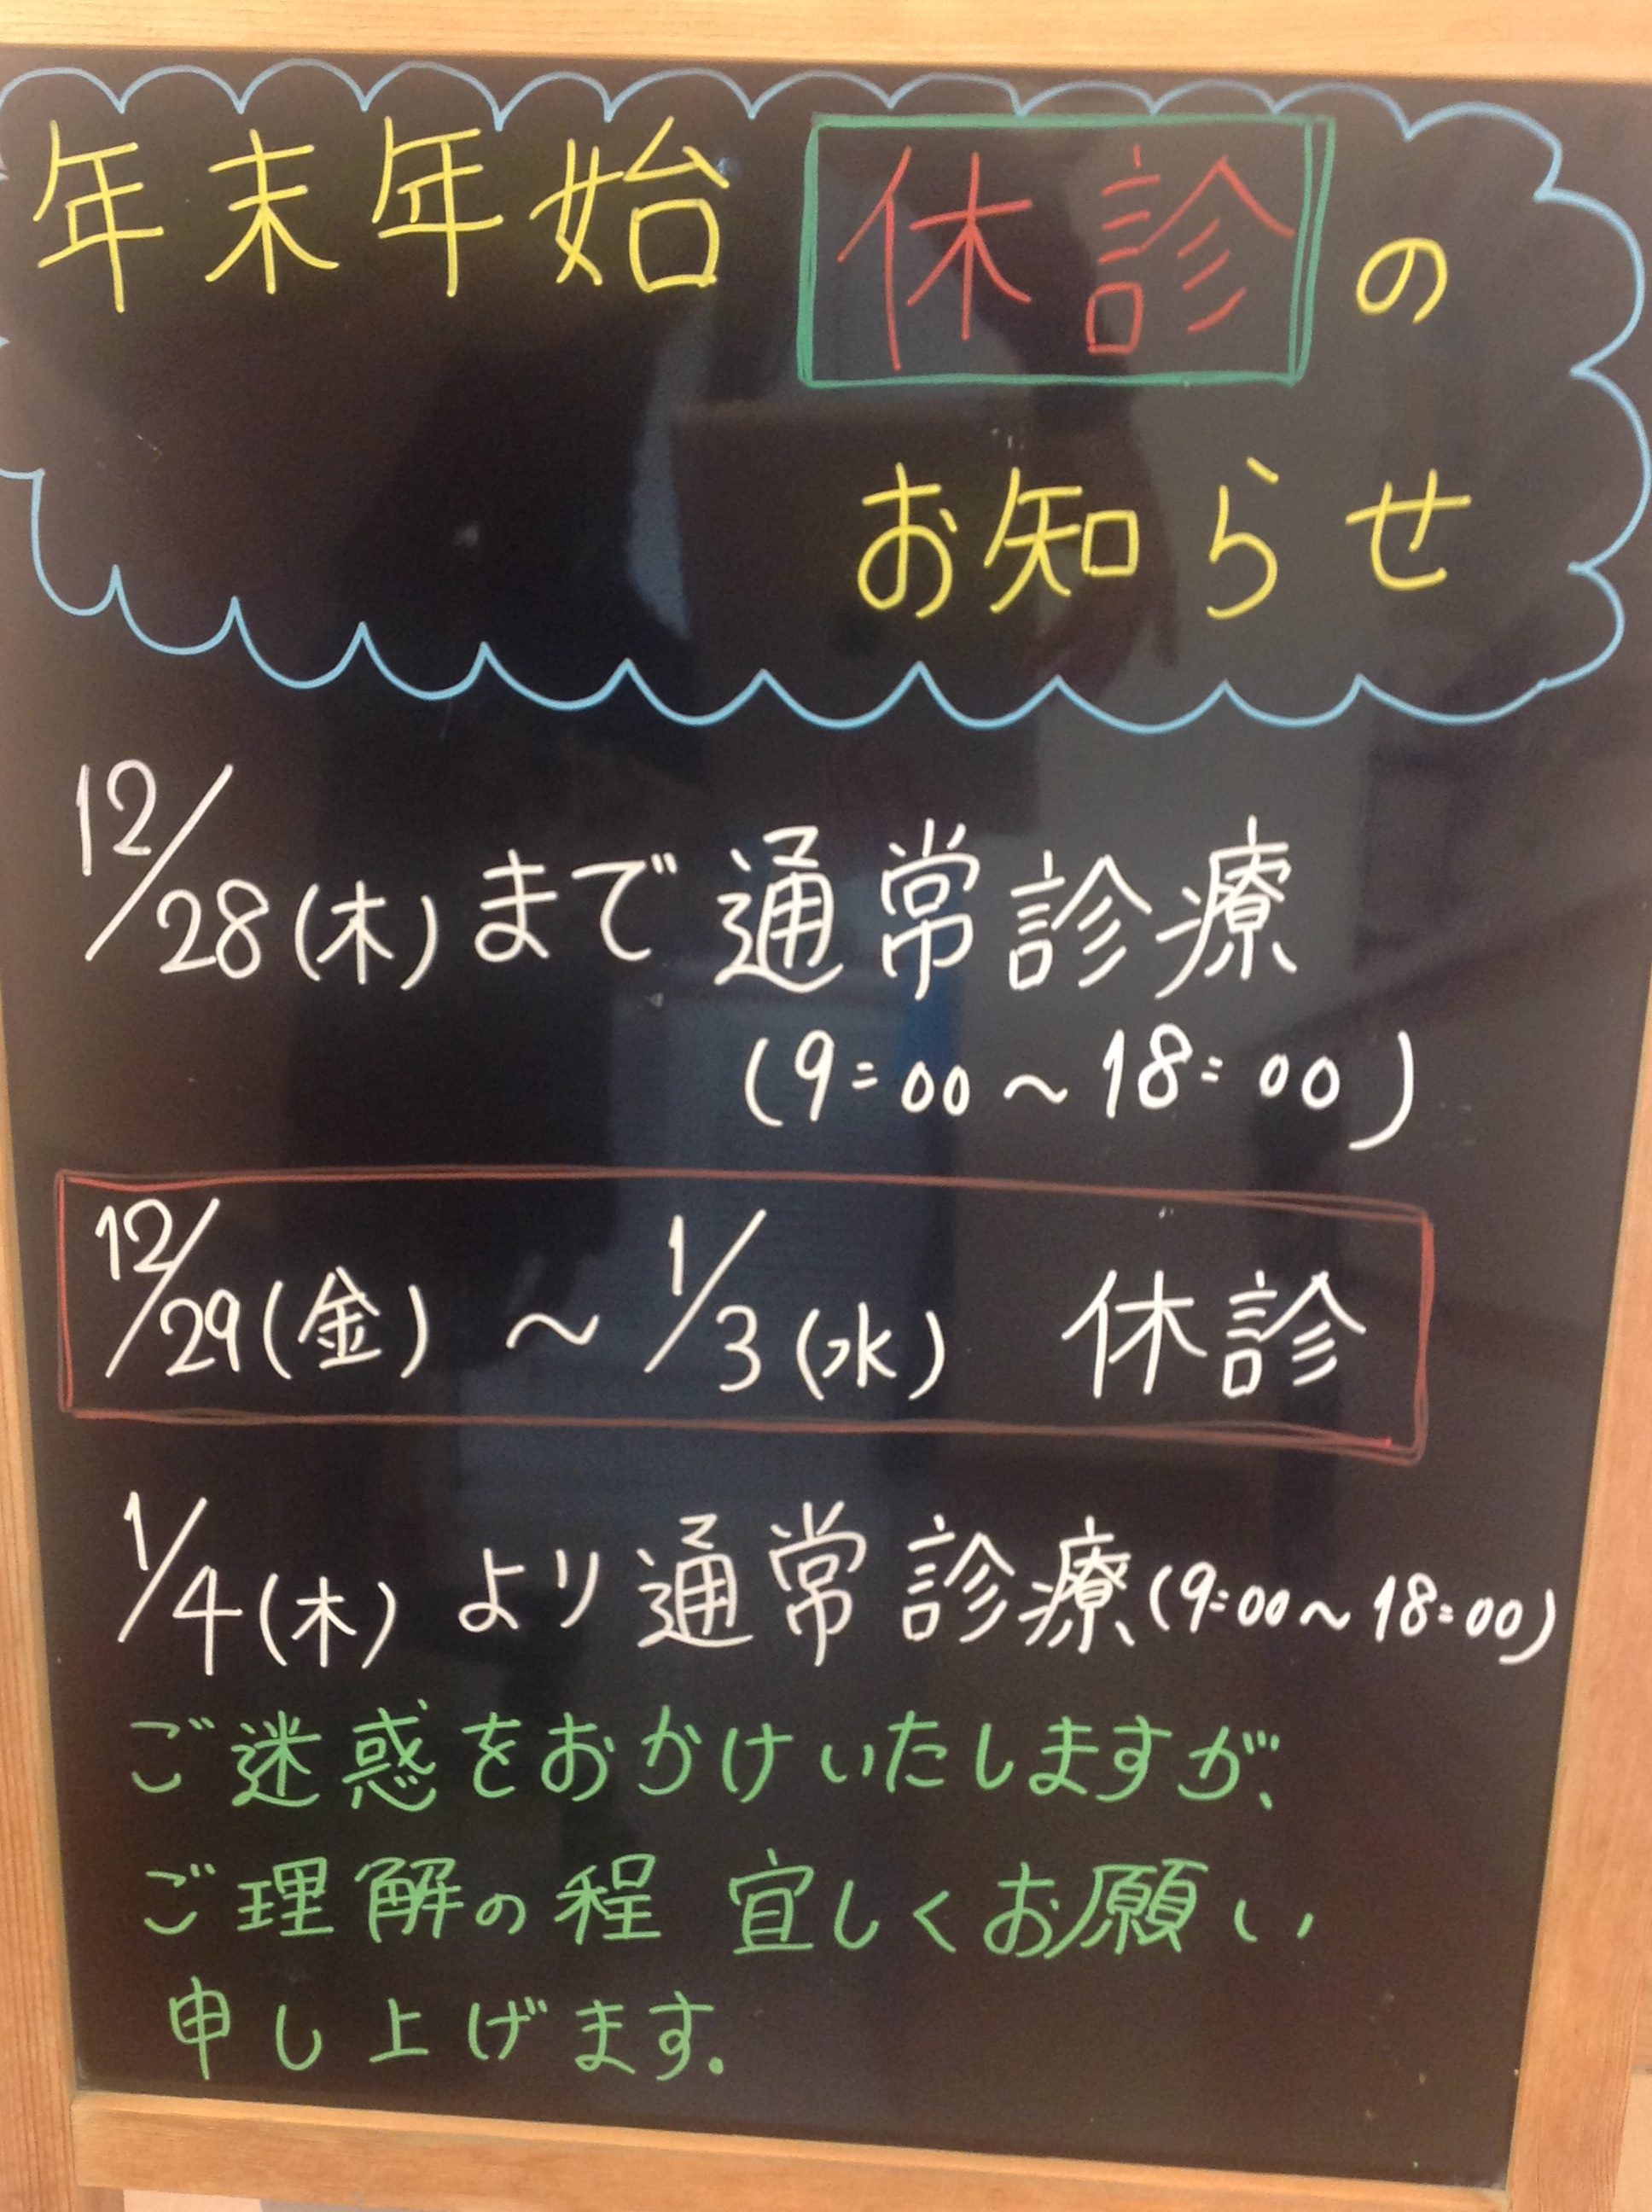 年末年始 休診の
お知らせ
12/28(木)まで 通常診療
(9:00～18:00)
12/29(金) ～ 1/3(水) 休診
1/4(木) より通常診療(9:00～18:00)
ご迷惑をおかけいたしますが、
ご理解の程 宜しくお願い
申し上げます。